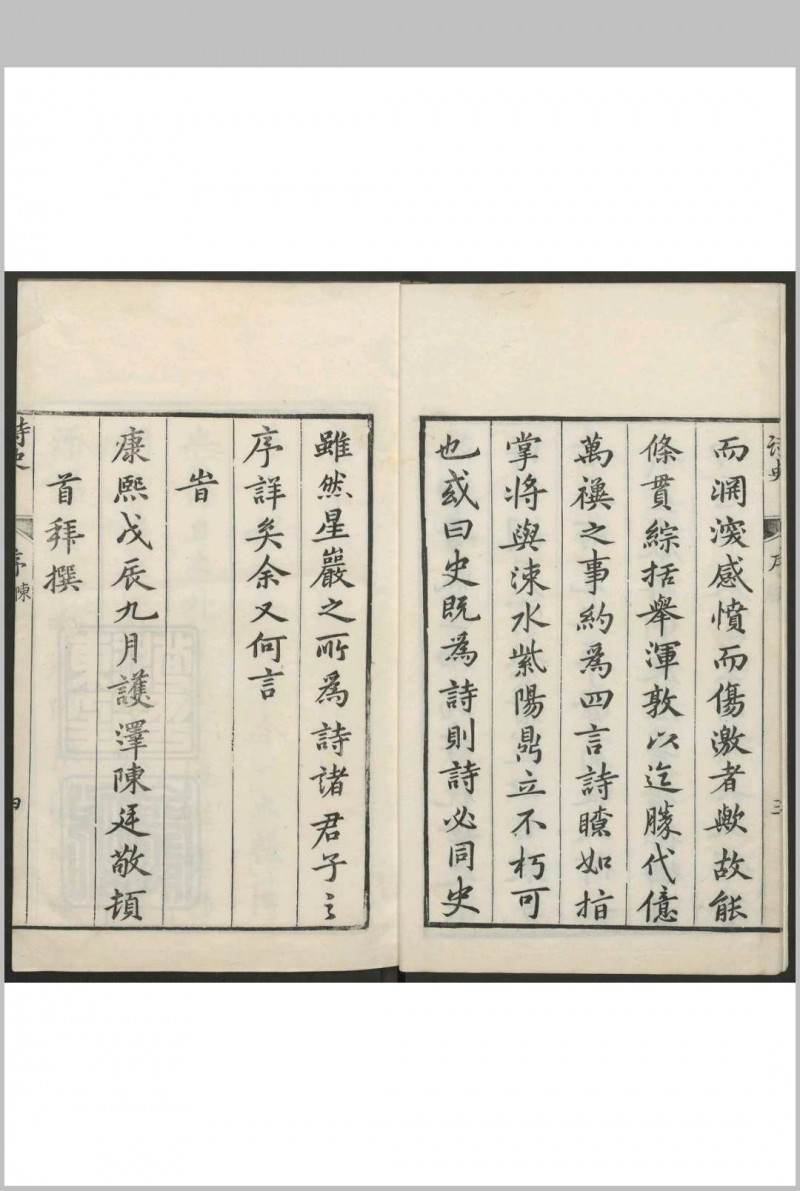 詩史
序
三
而淵瀠感憤而傷激者歟故能
條貫綜括舉渾敦以迄勝代億
萬禩之事約為四言詩瞭如指
掌將與涑水紫陽鼎立不朽可
也或曰史既為詩則詩必同史
雖然星巖之所為詩諸君子之
序詳矣余又何言
旹
康熙戊辰九月護澤陳廷敬頓
首拜撰
詩史
序
陳
四